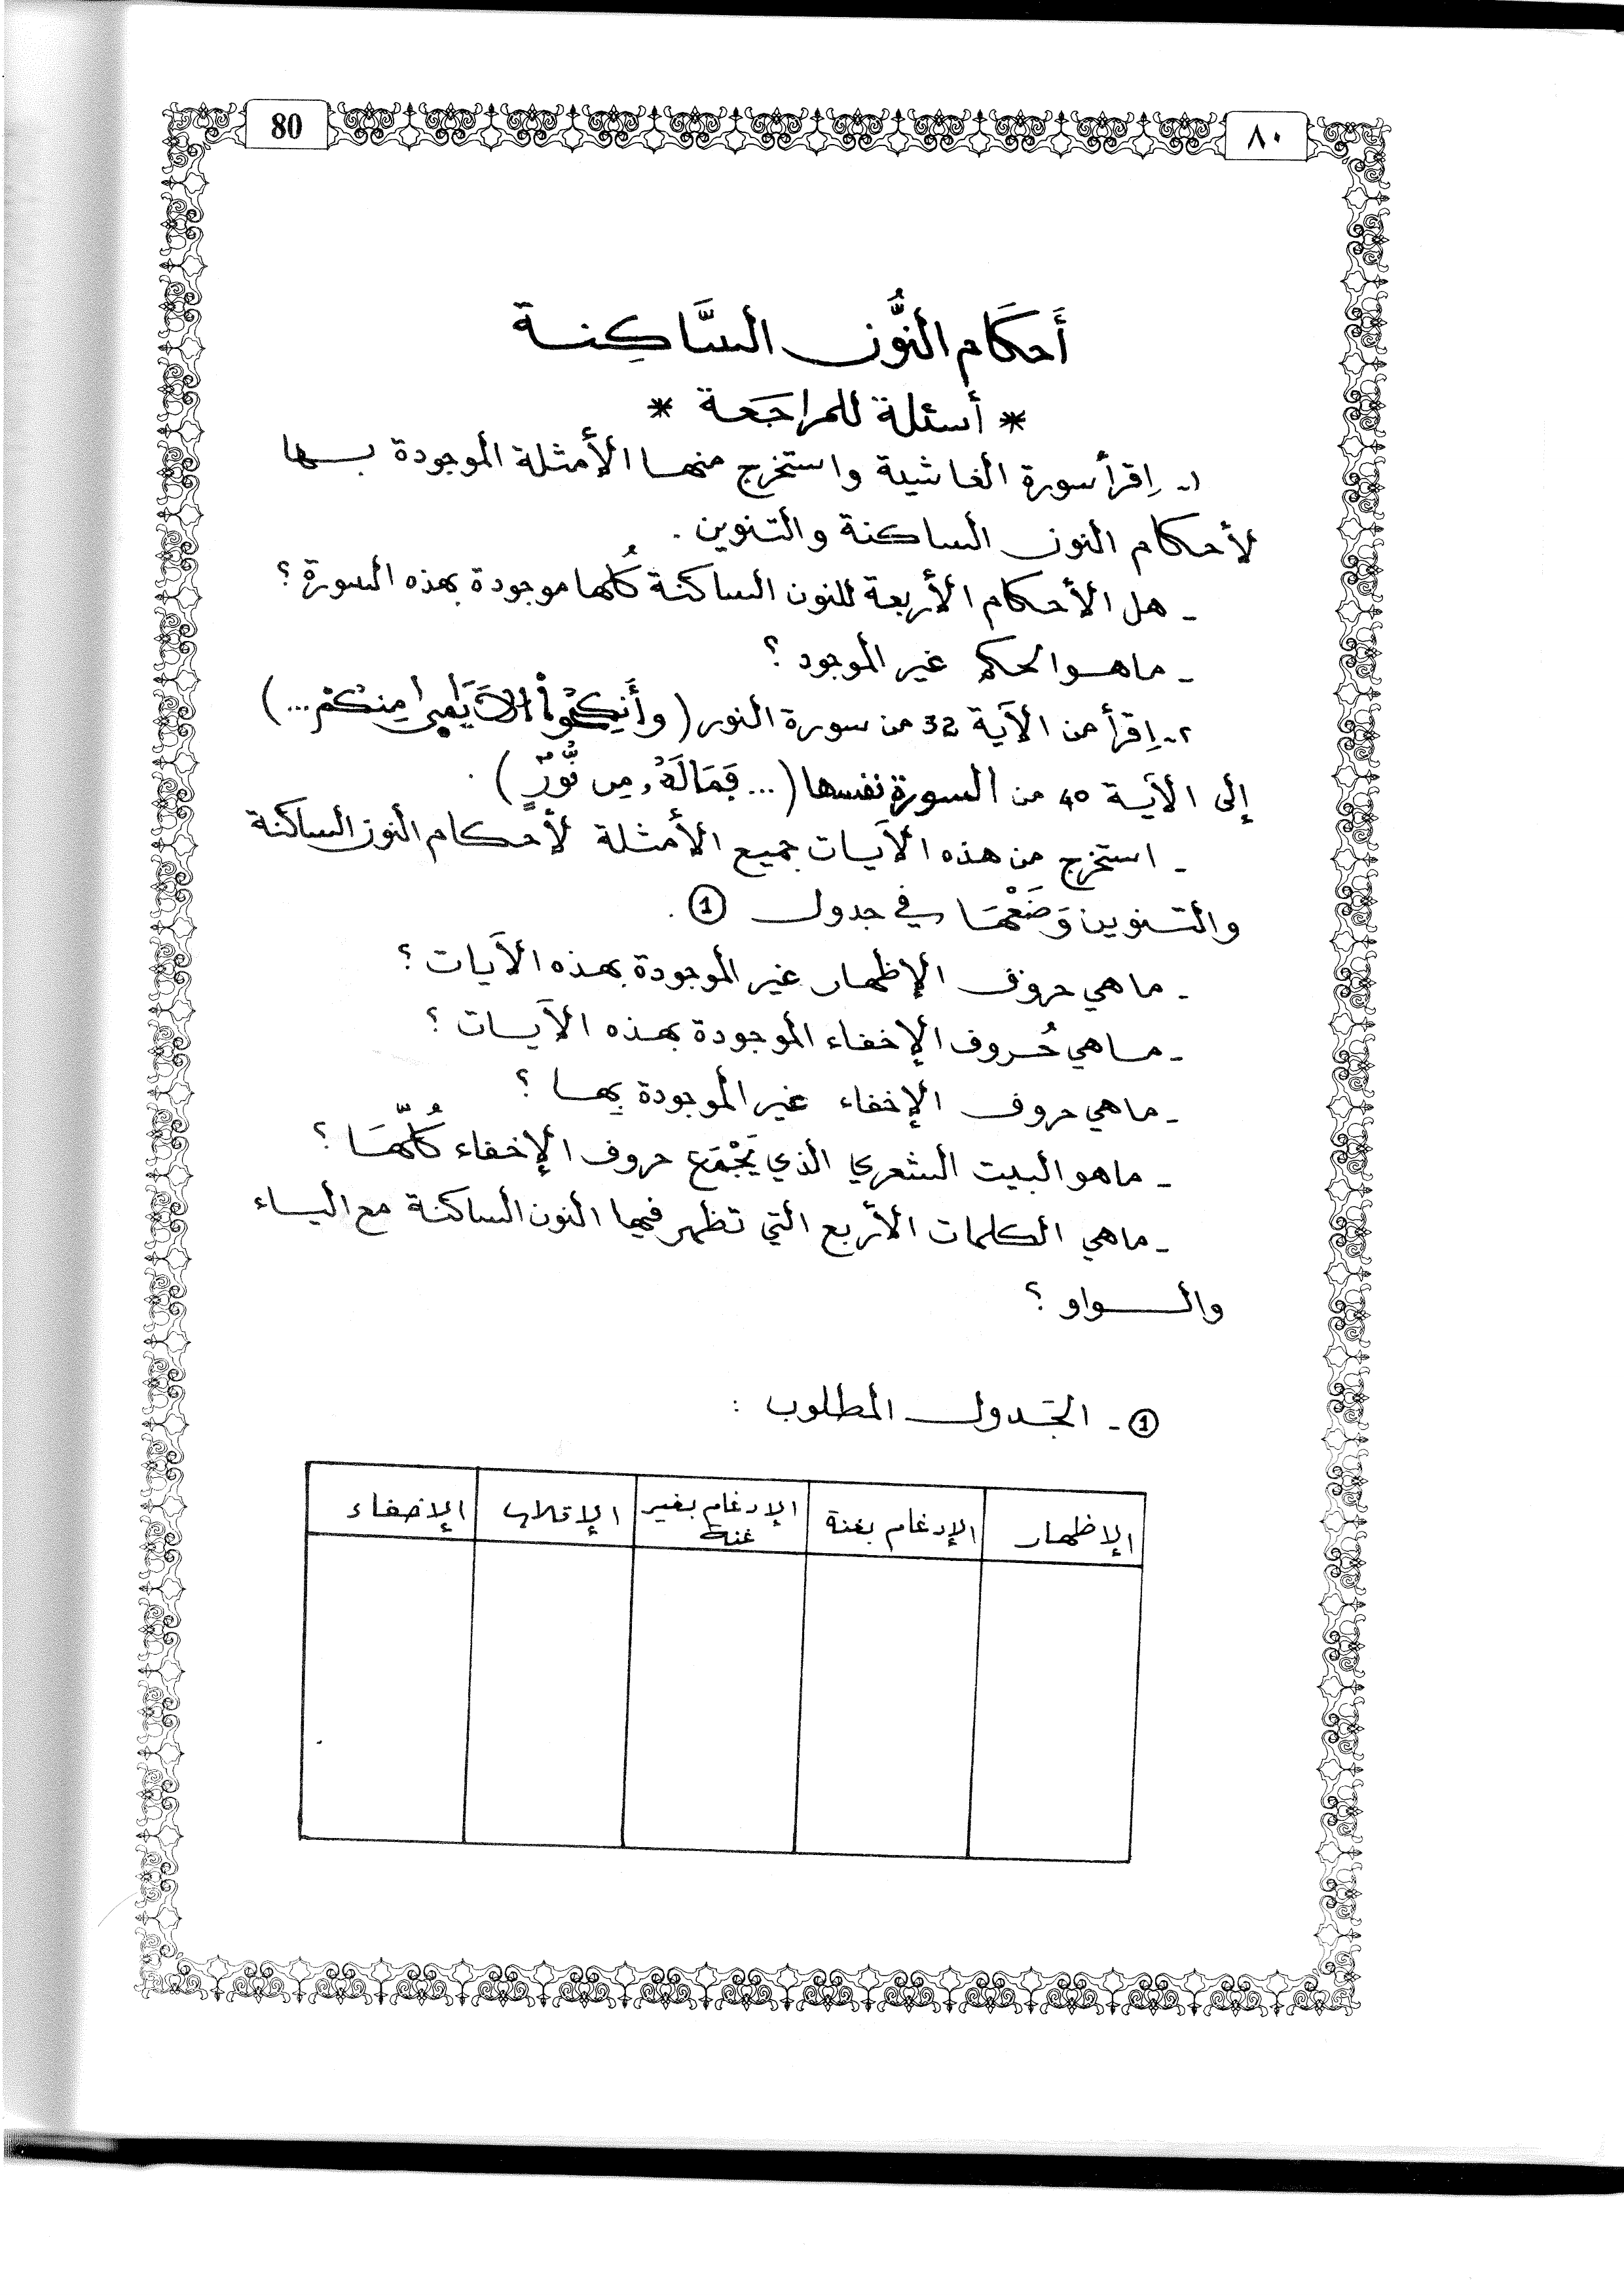 80
٨٠
أَحكَام النُّون السَّاكِنة
* أسئلة للمراجَعة *
١ـ اِقرأ سورة الغاشية واستخرج منها الأمثلة الموجودة بها
لأحكام النون الساكنة والتنوين .
ـ هل الأحكام الأربعة للنون الساكنة كُلها موجودة بهذه السورة ؟
ـ ماهو الحكم غير الموجود ؟
٢ـ اِقرأ من الآية 32 من سورة النور ( وأَنكِحُواْ الاَيَٰمىٰ مِنكُمْ ... )
إلى الآية 40 من السورة نفسها ( ... فَمَا لَهُۥ مِن نُّورٍ ) .
ـ استخرج من هذه الآيات جميع الأمثلة لأحكام النون الساكنة
والتنوين وَضَعْهَا في جدول ① .
ـ ماهي حروف الإظهار غير الموجودة بهذه الآيات ؟
ـ ماهي حُروف الإخفاء الموجودة بهذه الآيات ؟
ـ ماهي حروف الإخفاء غير الموجودة بها ؟
ـ ماهو البيت الشعري الذي يَجْمَع حروف الإخفاء كُلّهَا ؟
ـ ماهي الكلمات الأربع التي تظهر فيها النون الساكنة مع الياء
والواو ؟
① ـ الجَدول المطلوب :
الإظهار | الإدغام بغنة | الإدغام بغير غنة | الإقلاب | الإخفاء